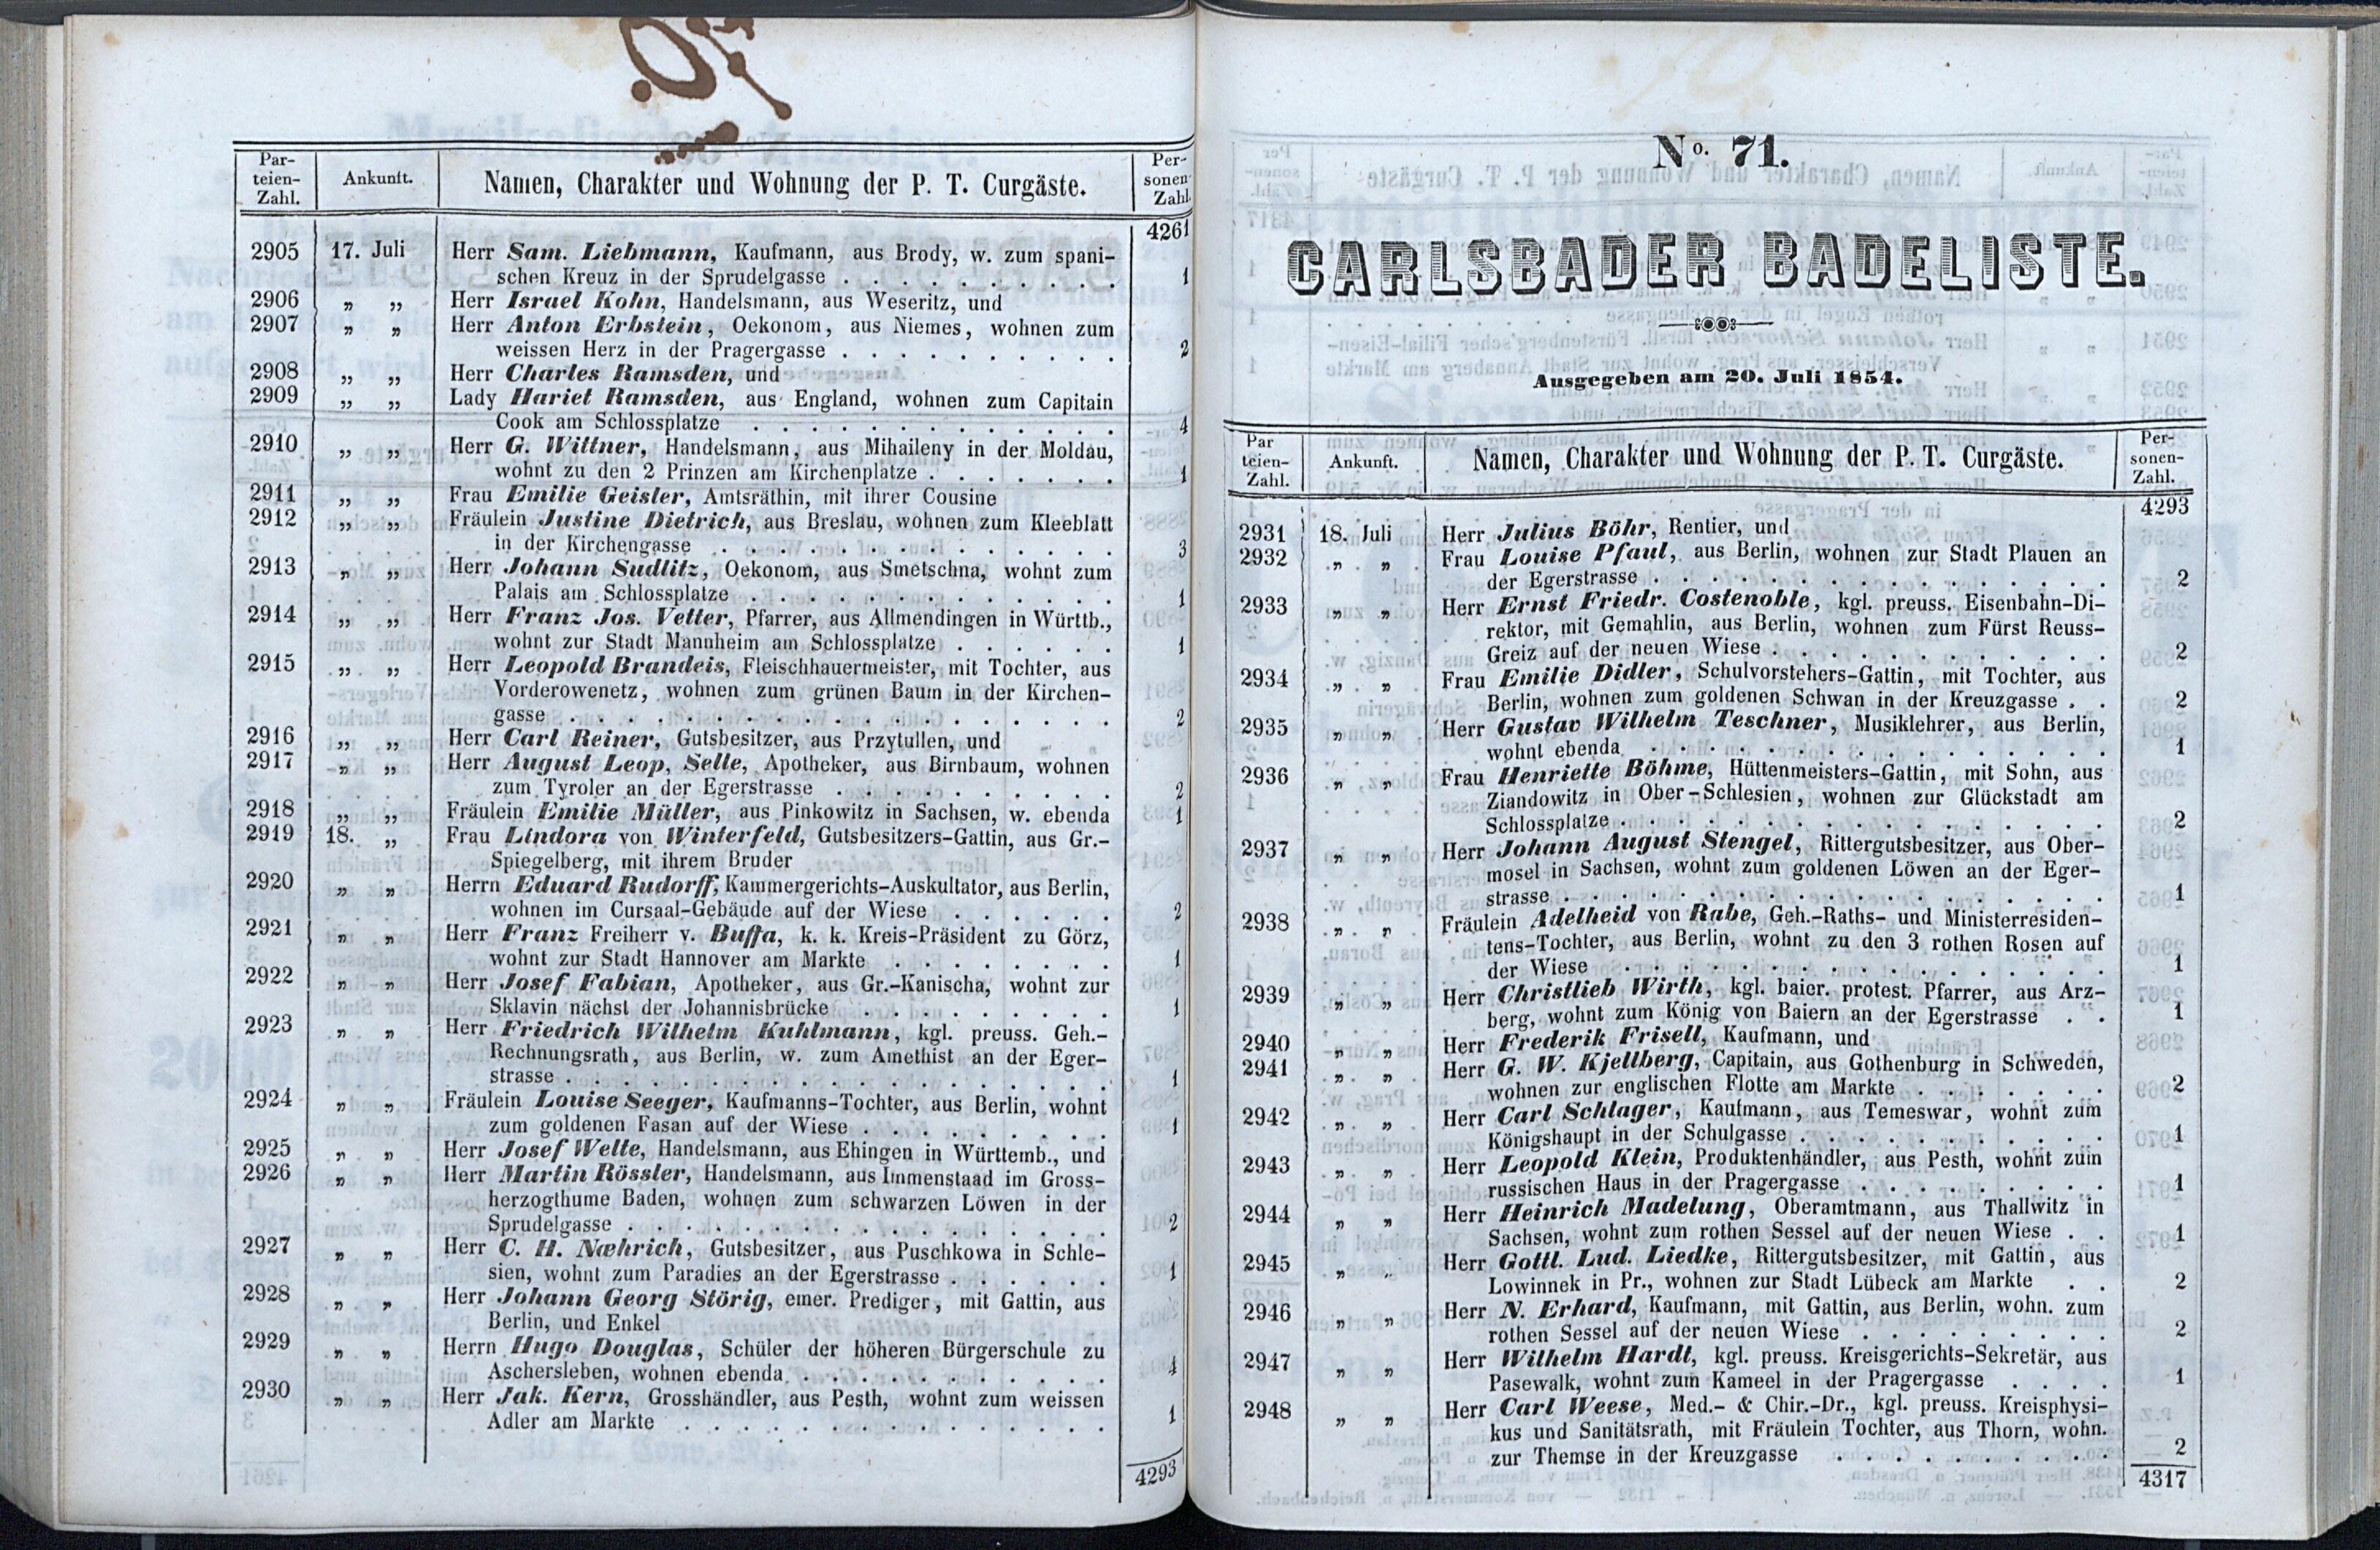 Par-
teien-
Zahl.
Ankunft.
Namen, Charakter und Wohnung der P. T. Curgäste.
Per-
sonen-
Zahl.
4261
2905 17. Juli Herr Sam. Liebmann, Kaufmann, aus Brody, w. zum spani-
schen Kreuz in der Sprudelgasse . . . . . . . . . . 1
2906 „ „ Herr Israel Kohn, Handelsmann, aus Weseritz, und
2907 „ „ Herr Anton Erbstein, Oekonom, aus Niemes, wohnen zum
weissen Herz in der Pragergasse . . . . . . . . . . 2
2908 „ „ Herr Charles Ramsden, und
2909 „ „ Lady Hariet Ramsden, aus England, wohnen zum Capitain
Cook am Schlossplatze . . . . . . . . . . . . . 4
2910 „ „ Herr G. Wittner, Handelsmann, aus Mihaileny in der Moldau,
wohnt zu den 2 Prinzen am Kirchenplatze . . . . . . . 1
2911 „ „ Frau Emilie Geisler, Amtsräthin, mit ihrer Cousine
2912 „ „ Fräulein Justine Dietrich, aus Breslau, wohnen zum Kleeblatt
in der Kirchengasse . . . . . . . . . . . . . . 3
2913 „ „ Herr Johann Sudlitz, Oekonom, aus Smetschna, wohnt zum
Palais am Schlossplatze . . . . . . . . . . . . . 1
2914 „ „ Herr Franz Jos. Vetter, Pfarrer, aus Allmendingen in Württb.,
wohnt zur Stadt Mannheim am Schlossplatze . . . . . . 1
2915 „ „ Herr Leopold Brandeis, Fleischhauermeister, mit Tochter, aus
Vorderowenetz, wohnen zum grünen Baum in der Kirchen-
gasse . . . . . . . . . . . . . . . . . . . 2
2916 „ „ Herr Carl Reiner, Gutsbesitzer, aus Przytullen, und
2917 „ „ Herr August Leop. Selle, Apotheker, aus Birnbaum, wohnen
zum Tyroler an der Egerstrasse . . . . . . . . . . 2
2918 „ „ Fräulein Emilie Müller, aus Pinkowitz in Sachsen, w. ebenda 1
2919 18. „ Frau Lindora von Winterfeld, Gutsbesitzers-Gattin, aus Gr.-
Spiegelberg, mit ihrem Bruder
2920 „ „ Herrn Eduard Rudorff, Kammergerichts-Auskultator, aus Berlin,
wohnen im Cursaal-Gebäude auf der Wiese . . . . . . 2
2921 „ „ Herr Franz Freiherr v. Buffa, k. k. Kreis-Präsident zu Görz,
wohnt zur Stadt Hannover am Markte . . . . . . . . 1
2922 „ „ Herr Josef Fabian, Apotheker, aus Gr.-Kanischa, wohnt zur
Sklavin nächst der Johannisbrücke . . . . . . . . . 1
2923 „ „ Herr Friedrich Wilhelm Kuhlmann, kgl. preuss. Geh.-
Rechnungsrath, aus Berlin, w. zum Amethist an der Eger-
strasse . . . . . . . . . . . . . . . . . . . 1
2924 „ „ Fräulein Louise Seeger, Kaufmanns-Tochter, aus Berlin, wohnt
zum goldenen Fasan auf der Wiese . . . . . . . . . 1
2925 „ „ Herr Josef Welte, Handelsmann, aus Ehingen in Württemb., und
2926 „ „ Herr Martin Rössler, Handelsmann, aus Immenstaad im Gross-
herzogthume Baden, wohnen zum schwarzen Löwen in der
Sprudelgasse . . . . . . . . . . . . . . . . . 2
2927 „ „ Herr C. H. Næhrich, Gutsbesitzer, aus Puschkowa in Schle-
sien, wohnt zum Paradies an der Egerstrasse . . . . . . 1
2928 „ „ Herr Johann Georg Störig, emer. Prediger, mit Gattin, aus
Berlin, und Enkel
2929 „ „ Herrn Hugo Douglas, Schüler der höheren Bürgerschule zu
Aschersleben, wohnen ebenda . . . . . . . . . . . 4
2930 „ „ Herr Jak. Kern, Grosshändler, aus Pesth, wohnt zum weissen
Adler am Markte . . . . . . . . . . . . . . . 1
4293
No. 71.
CARLSBADER BADELISTE.
Ausgegeben am 20. Juli 1854.
Par
teien-
Zahl.
Ankunft.
Namen, Charakter und Wohnung der P. T. Curgäste.
Per-
sonen-
Zahl.
4293
2931 18. Juli Herr Julius Böhr, Rentier, und
2932 „ „ Frau Louise Pfaul, aus Berlin, wohnen zur Stadt Plauen an
der Egerstrasse . . . . . . . . . . . . . . . . 2
2933 „ „ Herr Ernst Friedr. Costenoble, kgl. preuss. Eisenbahn-Di-
rektor, mit Gemahlin, aus Berlin, wohnen zum Fürst Reuss-
Greiz auf der neuen Wiese . . . . . . . . . . . . 2
2934 „ „ Frau Emilie Didler, Schulvorstehers-Gattin, mit Tochter, aus
Berlin, wohnen zum goldenen Schwan in der Kreuzgasse . . 2
2935 „ „ Herr Gustav Wilhelm Teschner, Musiklehrer, aus Berlin,
wohnt ebenda . . . . . . . . . . . . . . . . 1
2936 „ „ Frau Henriette Böhme, Hüttenmeisters-Gattin, mit Sohn, aus
Ziandowitz in Ober-Schlesien, wohnen zur Glückstadt am
Schlossplatze . . . . . . . . . . . . . . . . . 2
2937 „ „ Herr Johann August Stengel, Rittergutsbesitzer, aus Ober-
mosel in Sachsen, wohnt zum goldenen Löwen an der Eger-
strasse . . . . . . . . . . . . . . . . . . . 1
2938 „ „ Fräulein Adelheid von Rabe, Geh.-Raths- und Ministerresiden-
tens-Tochter, aus Berlin, wohnt zu den 3 rothen Rosen auf
der Wiese . . . . . . . . . . . . . . . . . 1
2939 „ „ Herr Christlieb Wirth, kgl. baier. protest. Pfarrer, aus Arz-
berg, wohnt zum König von Baiern an der Egerstrasse . . 1
2940 „ „ Herr Frederik Frisell, Kaufmann, und
2941 „ „ Herr G. W. Kjellberg, Capitain, aus Gothenburg in Schweden,
wohnen zur englischen Flotte am Markte . . . . . . . 2
2942 „ „ Herr Carl Schlager, Kaufmann, aus Temeswar, wohnt zum
Königshaupt in der Schulgasse . . . . . . . . . . . 1
2943 „ „ Herr Leopold Klein, Produktenhändler, aus Pesth, wohnt zum
russischen Haus in der Pragergasse . . . . . . . . . 1
2944 „ „ Herr Heinrich Madelung, Oberamtmann, aus Thallwitz in
Sachsen, wohnt zum rothen Sessel auf der neuen Wiese . . 1
2945 „ „ Herr Gottl. Lud. Liedke, Rittergutsbesitzer, mit Gattin, aus
Lowinnek in Pr., wohnen zur Stadt Lübeck am Markte . . 2
2946 „ „ Herr N. Erhard, Kaufmann, mit Gattin, aus Berlin, wohn. zum
rothen Sessel auf der neuen Wiese . . . . . . . . . 2
2947 „ „ Herr Wilhelm Hardt, kgl. preuss. Kreisgerichts-Sekretär, aus
Pasewalk, wohnt zum Kameel in der Pragergasse . . . . 1
2948 „ „ Herr Carl Weese, Med.- & Chir.-Dr., kgl. preuss. Kreisphysi-
kus und Sanitätsrath, mit Fräulein Tochter, aus Thorn, wohn.
zur Themse in der Kreuzgasse . . . . . . . . . . 2
4317